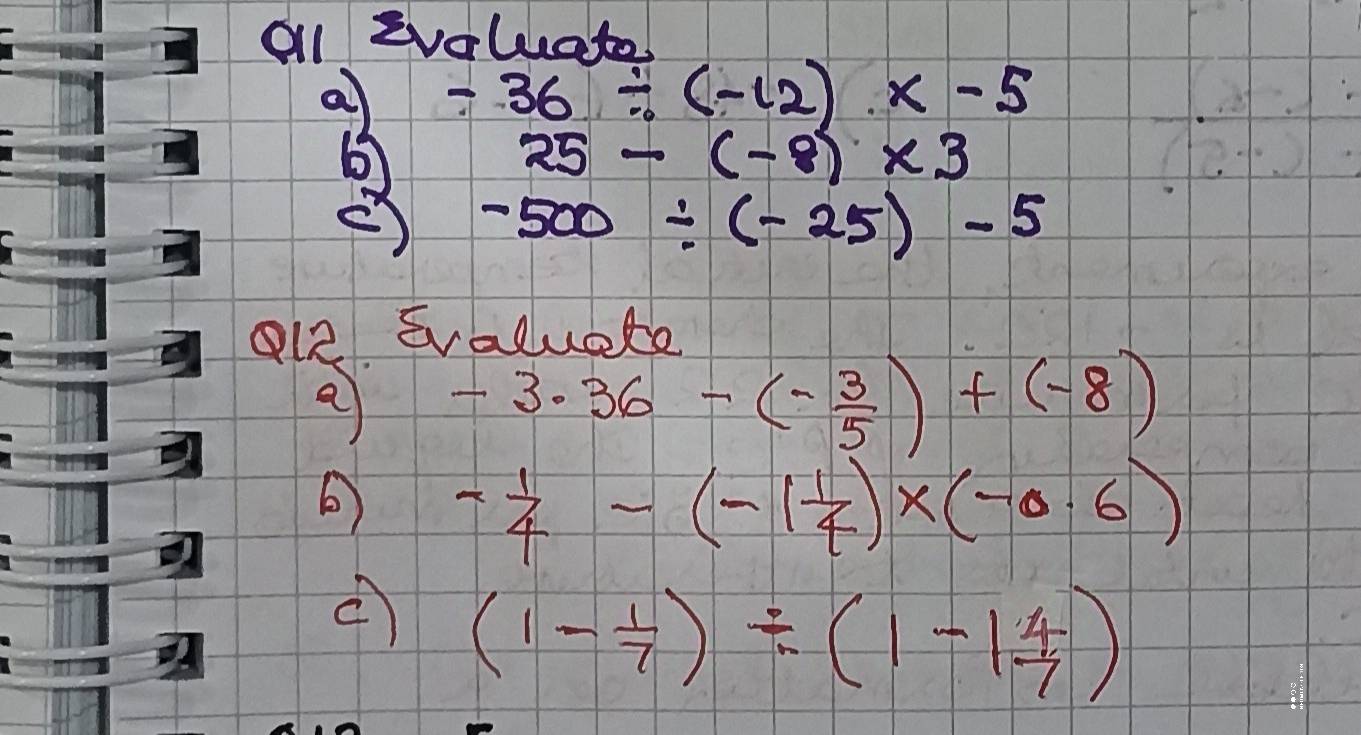 Q11 Evaluate
a) - 36 ÷ (-12) × - 5
b) 25 - (-8) × 3
c) -500 ÷ (- 25) - 5
Q12. Evaluate
a) - 3.36 - (- 3/5) + (- 8)
b) - 1/4 - (- 1 1/4) × (-0.6)
c) (1 - 1/7) ÷ (1 - 1 4/7)